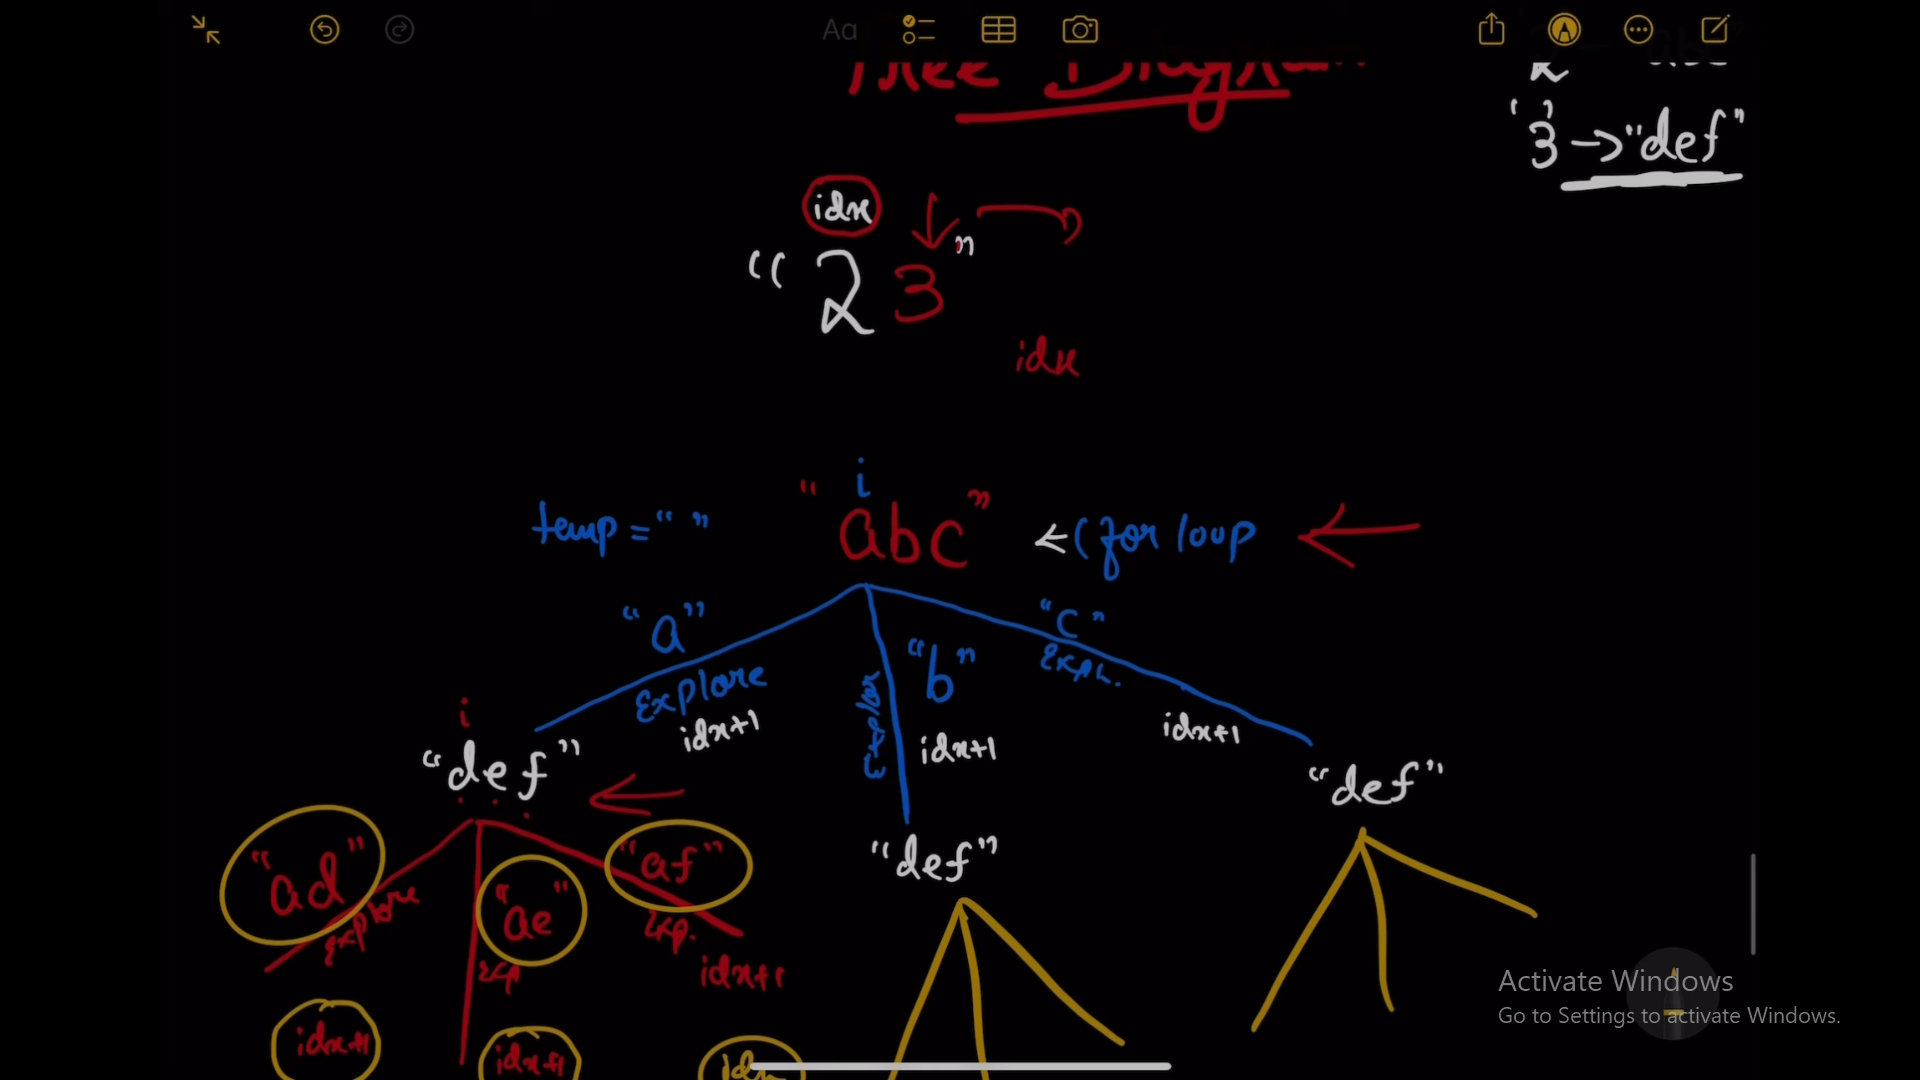 Aa
Tree Diagram
2 abc
'3' → "def"
idx
" 2 3 "
idx
i
temp = " " "abc" ← (for loop
"a" "b" "c"
Explore Explor Expl.
idx+1 idx+1 idx+1
i
"def" "def" "def"
"ad" "ae" "af"
explore exp exp.
idx+1
idx+1 idx+1 idx
Activate Windows
Go to Settings to activate Windows.